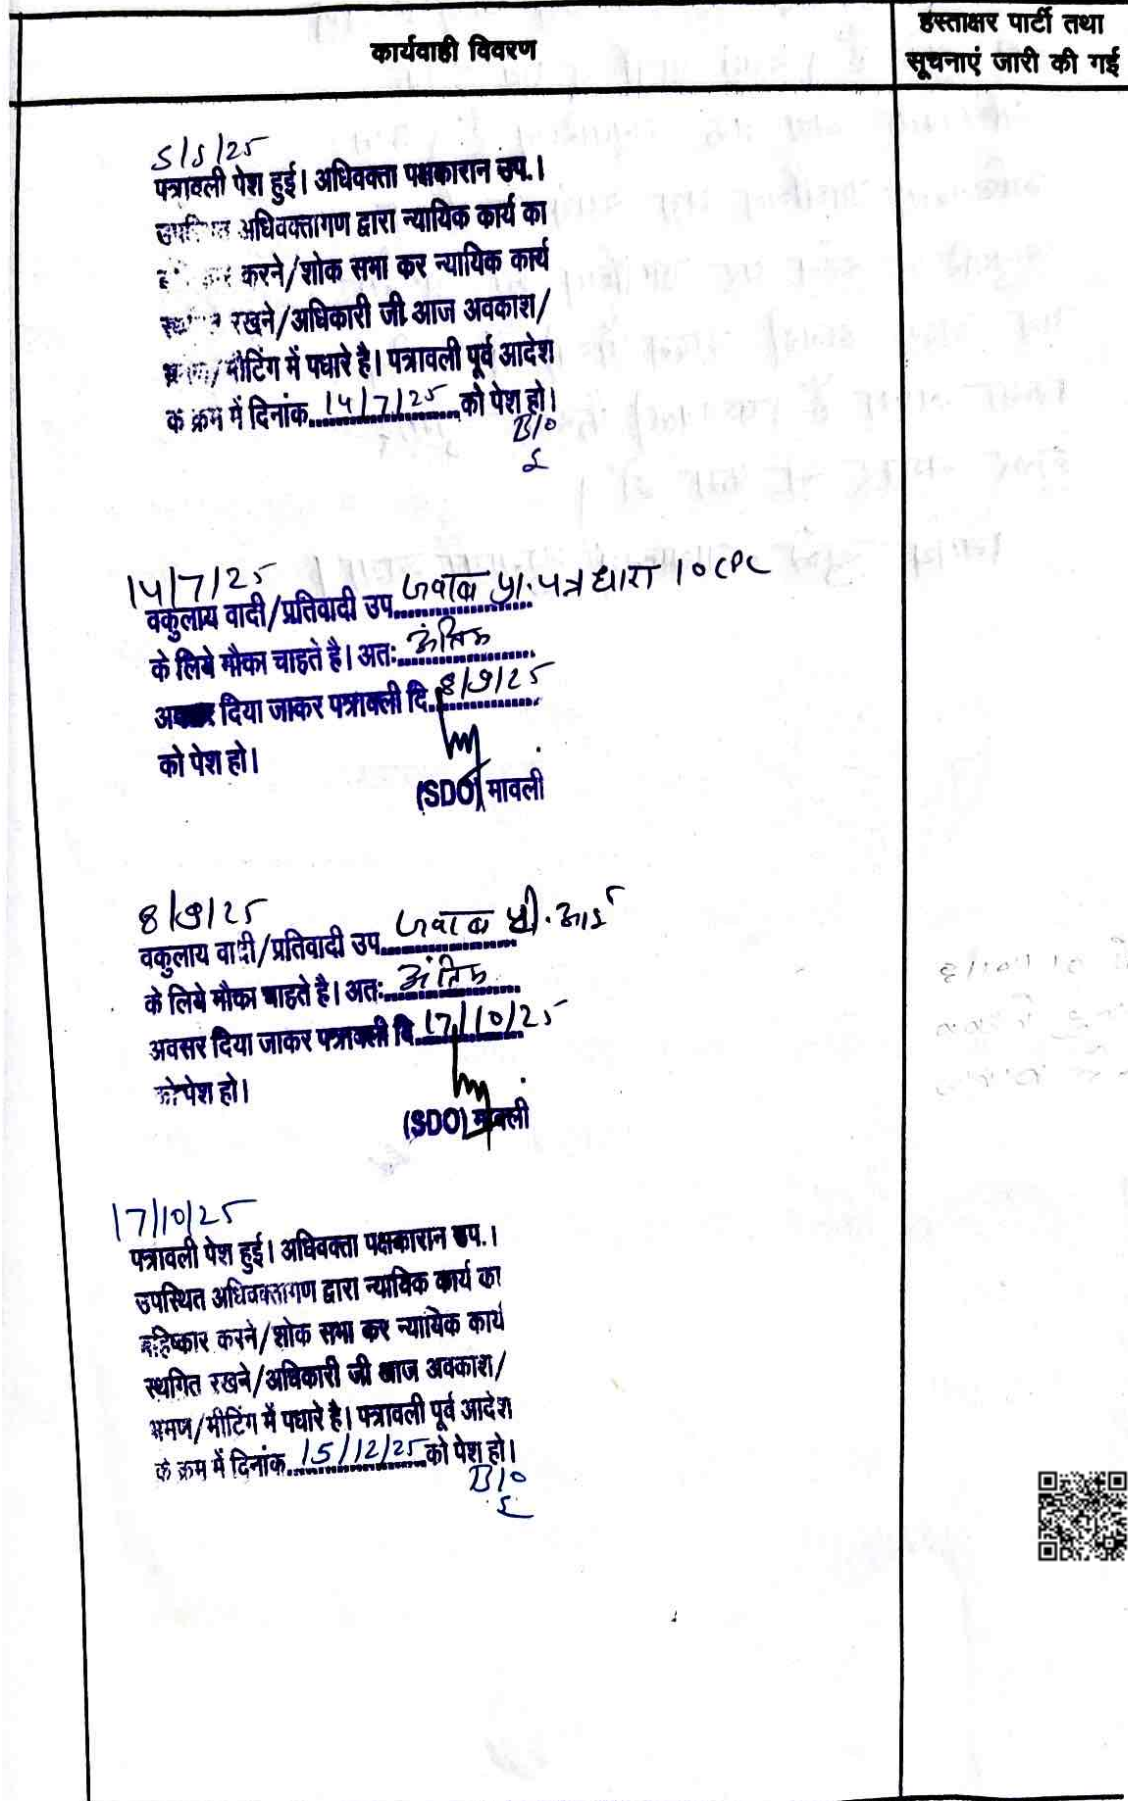 कार्यवाही विवरण
हस्ताक्षर पार्टी तथा
सूचनाएं जारी की गई
5/5/25
पत्रावली पेश हुई। अधिवक्ता पक्षकारान उप.।
उपस्थित अधिवक्तागण द्वारा न्यायिक कार्य का
करने/शोक सभा कर न्यायिक कार्य
रखने/अधिकारी जी आज अवकाश/
/मीटिंग में पधारे है। पत्रावली पूर्व आदेश
के क्रम में दिनांक 14/7/25 को पेश हो।
B/o
14/7/25
वकुलाय वादी/प्रतिवादी उप जवाब प्रा. पत्र धारा 10 CPC
के लिये मौका चाहते है। अतः अंतिम
अवसर दिया जाकर पत्रावली दि. 8/9/25
को पेश हो।
(SDO) मावली
8/9/25
वकुलाय वादी/प्रतिवादी उप जवाब
के लिये मौका चाहते है। अतः अंतिम
अवसर दिया जाकर पत्रावली दि 17/10/25
को पेश हो।
(SDO) मावली
17/10/25
पत्रावली पेश हुई। अधिवक्ता पक्षकारान उप.।
उपस्थित अधिवक्तागण द्वारा न्यायिक कार्य का
बहिष्कार करने/शोक सभा कर न्यायिक कार्य
स्थगित रखने/अधिकारी जी आज अवकाश/
भ्रमण/मीटिंग में पधारे है। पत्रावली पूर्व आदेश
के क्रम में दिनांक 15/12/25 को पेश हो।
B/o